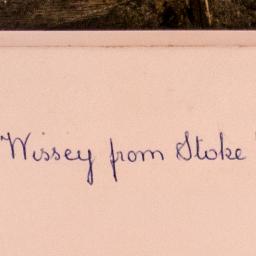 Wissey from Stoke